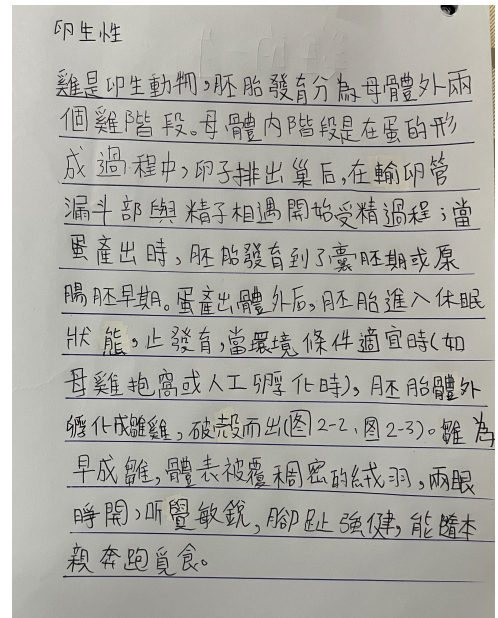 卵生性
雞是卵生動物，胚胎發育分為母體外兩
個雞階段。母體內階段是在蛋的形
成過程中，卵子排出巢后，在輸卵管
漏斗部與精子相遇開始受精過程；當
蛋產出時，胚胎發育到了囊胚期或原
腸胚早期。蛋產出體外后，胚胎進入休眠
狀態，止發育，當環境條件適宜時(如
母雞抱窩或人工孵化時)，胚胎體外
孵化成雛雞，破殼而出(图2-2、图2-3)。雛為
早成雛，體表被覆稠密的絨羽，兩眼
睜開，听覺敏銳，腳趾強健，能隨本
親奔跑覓食。